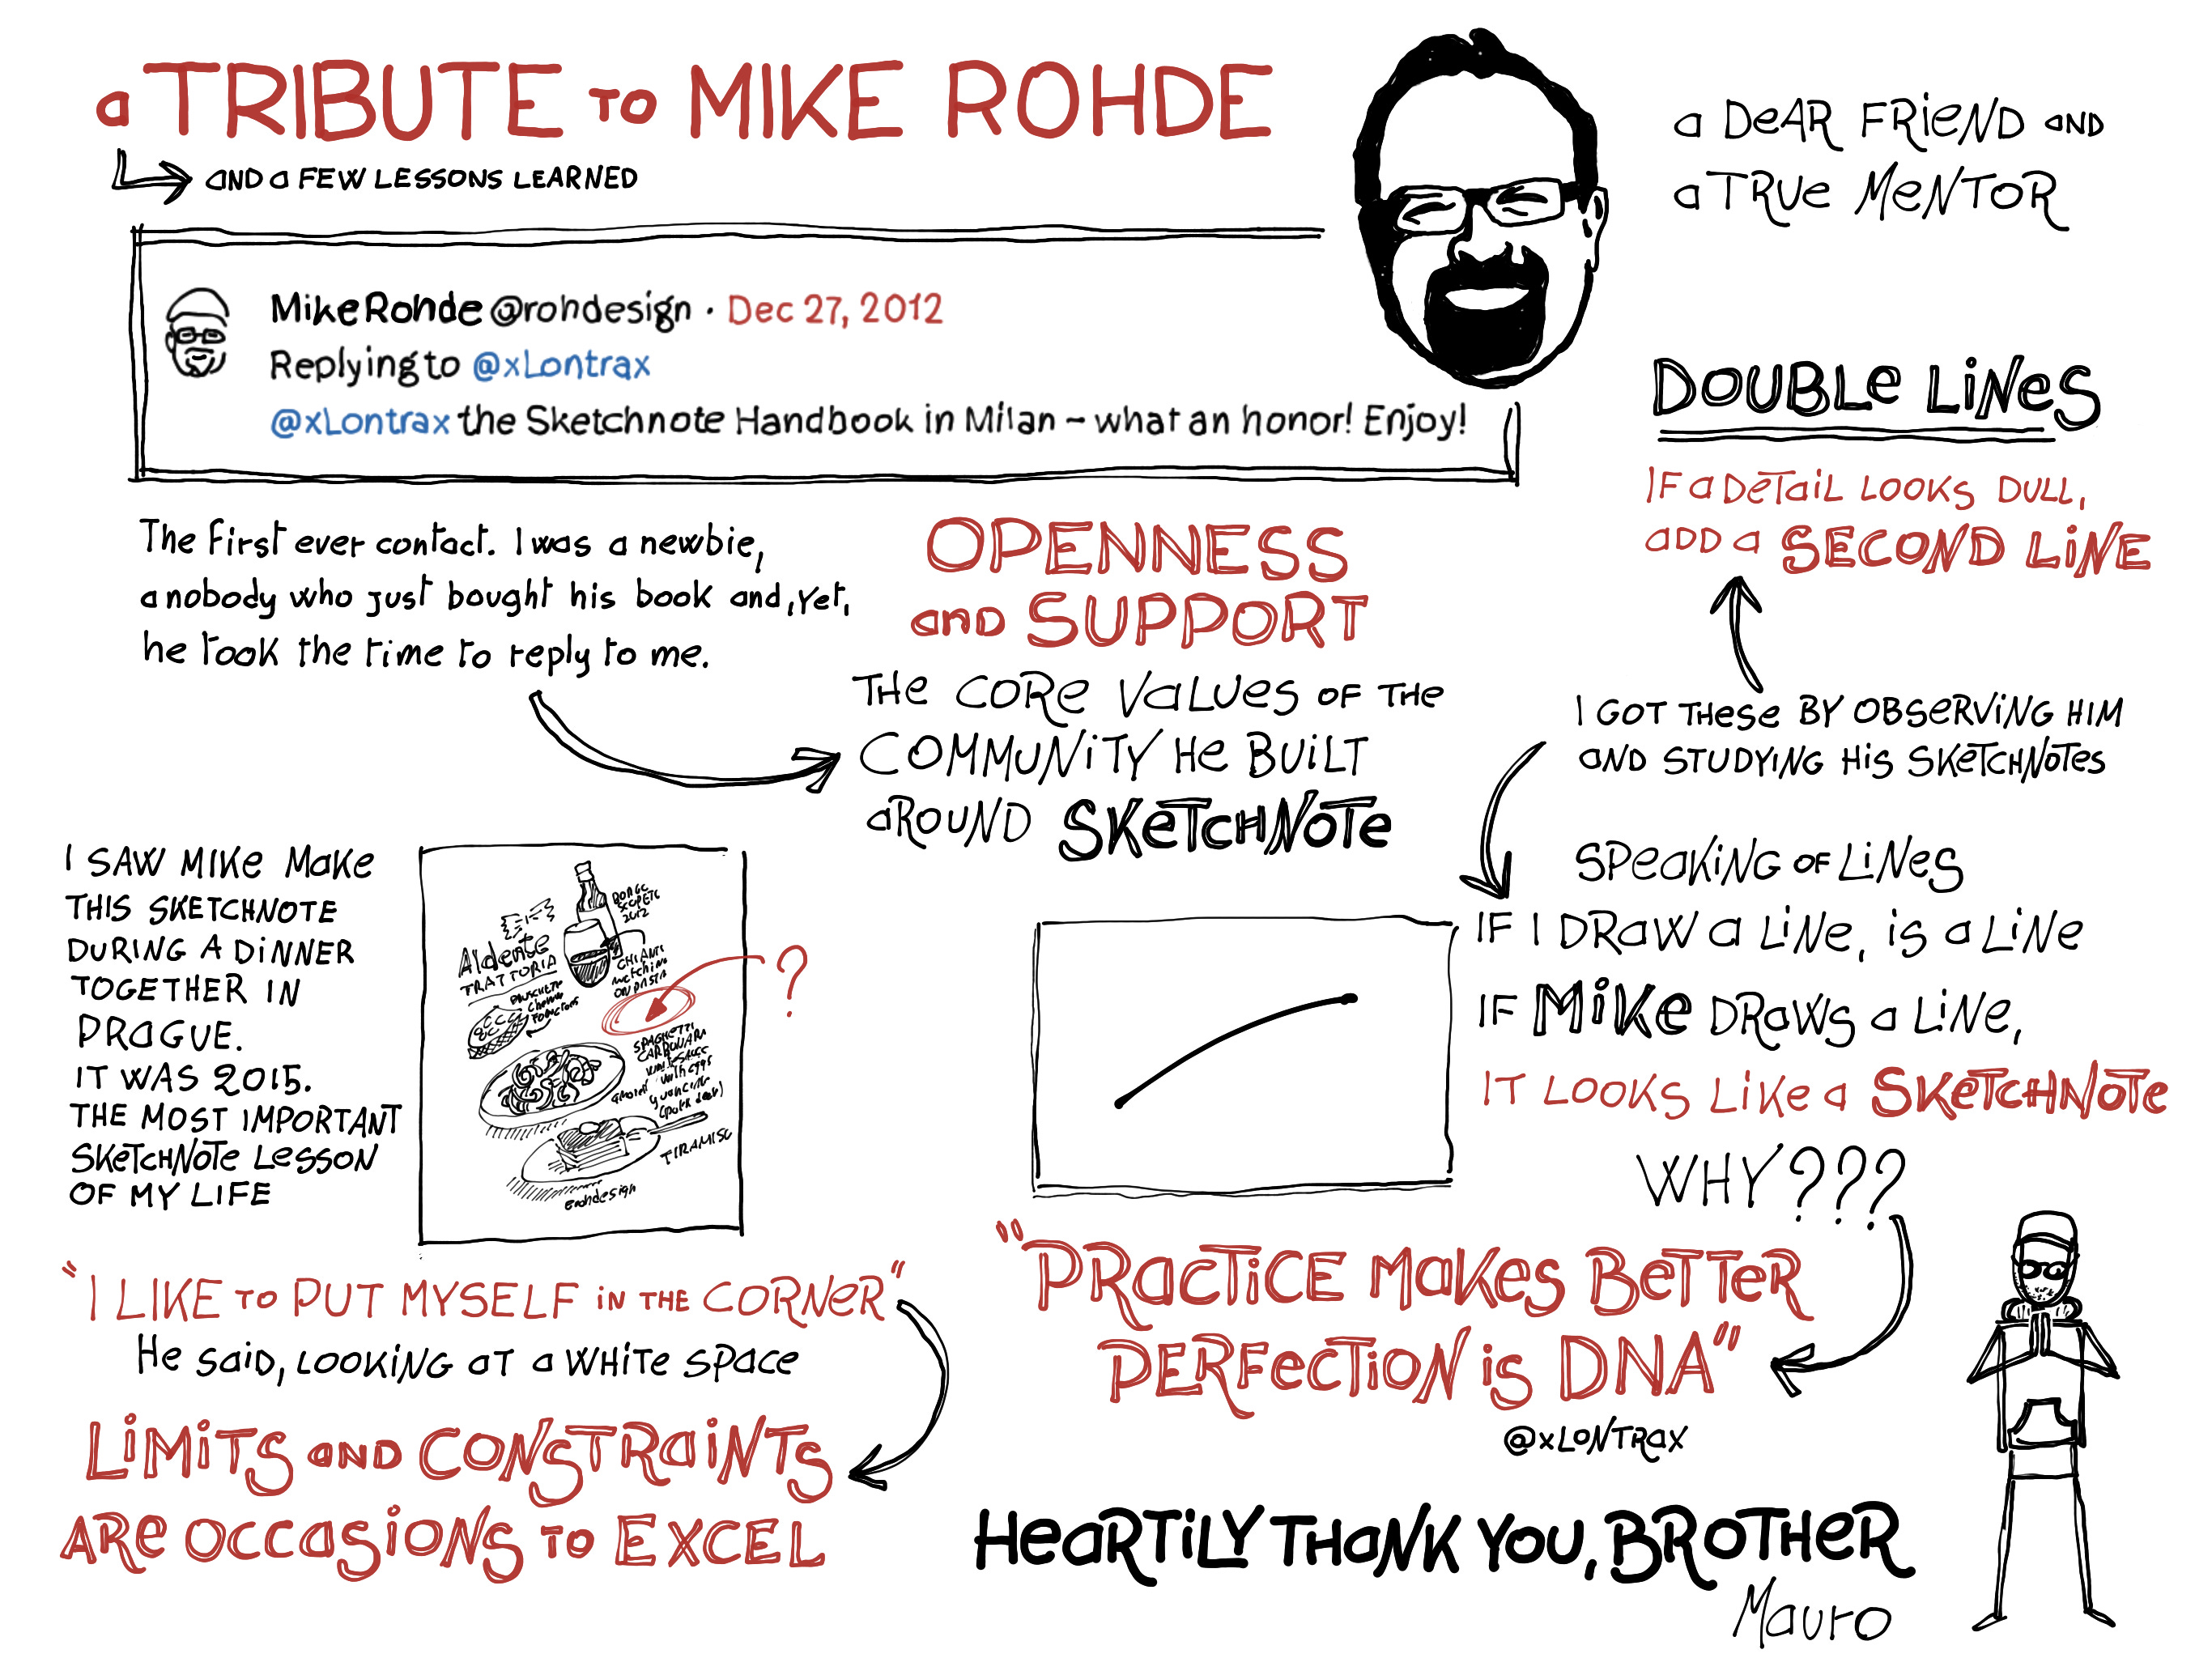 a TRIBUTE TO MIKE ROHDE
AND a FEW LESSONS LEARNED
a DeAR FRieND AND
a TRUe MeNTOR
Mike Rohde @rohdesign · Dec 27, 2012
Replying to @xLontrax
@xLontrax the Sketchnote Handbook in Milan – what an honor! Enjoy!
DOUBLe LiNeS
IF a DeTaiL LOOKS DULL,
ADD a SECOND LiNE
The first ever contact. I was a newbie,
a nobody who just bought his book and, yet,
he took the time to reply to me.
OPENNESS
and SUPPORT
THe CORe VaLUeS OF THe
COMMUNiTY He BUiLT
aROUND SKeTCHNOTe
I GOT THeSe BY OBSeRViNG HiM
AND STUDYiNG HiS SKeTCHNOTeS
I SAW MIKe MaKe
THIS SKETCHNOTE
DURING A DiNNER
TOGETHER IN
PRaGUE.
IT WAS 2015.
THE MOST IMPORTANT
SKeTCHNOTe LeSSON
OF MY LIFE
Aldente
TRATTORIA
2012
CHIANTI
ON PASTA
?
SPAGHETTI
CARBONARA
with eggs
TIRAMISU
@rohdesign
SPeaKiNG OF LiNeS
IF I DRaW a LiNe, iS a LiNe
IF MiKe DRaWS a LiNe,
IT LOOKS LiKe a SKeTCHNOTe
WHY???
"I LIKE TO PUT MYSELF iN THE CORNeR"
He SaiD, LOOKiNG aT a WHiTe SPace
LiMiTS AND CONSTRaiNTS
ARe OCCaSiONS TO EXCEL
"PRacTiCE MaKeS BeTTeR
PERFeCTiON iS DNA"
@xLONTRax
HeaRTiLY THaNK YOU, BROTHeR
Mauro